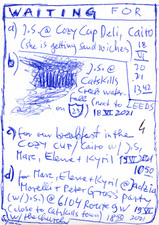 WAITING FOR
a) J.S. @ COZY Cup Deli, Cairo
(she is getting sandwiches) 18
VI
b) J.S. @ 20
Catskills 21
Creek water 1342
falls (next to LEEDS
on 23 18 VI 2021
4
c) for our breakfast in the
COZY CUP / Cairo w/ J.S,
Marc, Elene + Kyril 19 VI 2021
1050
d) for Marc, Elene + Kyril @
Morelli + Peter Gross party
(w/ J.S.) @ 6104 Route 9W 19
(close to Catskills town VI
w/ the church) 1850 2021